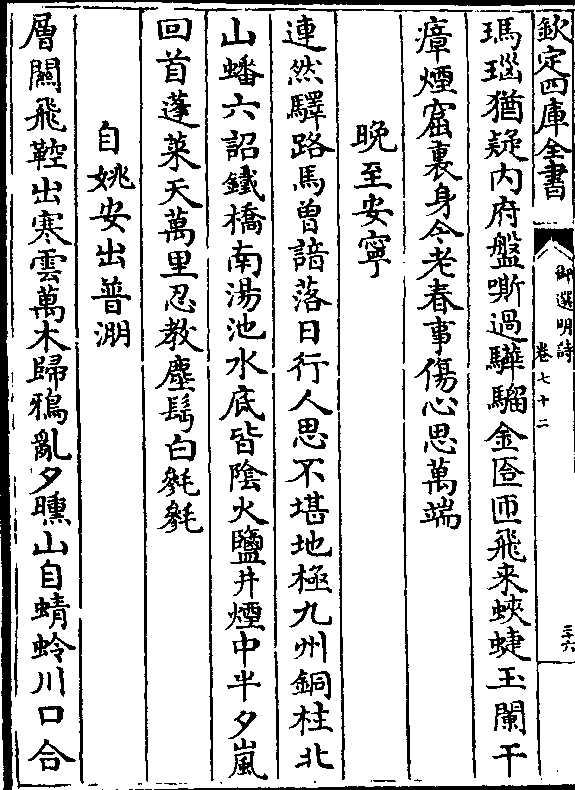 欽定四庫全書
御選明詩
卷七十二
三六
瑪瑙猶疑内府盤嘶過驊騮金匼匝飛来蛺蜨玉闌干
瘴煙窟裏身今老春事傷心思萬端
晚至安寧
連然驛路馬曽諳落日行人思不堪地極九州銅柱北
山蟠六詔鐵橋南湯池水底皆陰火鹽井煙中半夕嵐
回首蓬萊天萬里忍教塵鬂白毿毿
自姚安出普淜
層關飛鞚出寒雲萬木歸鴉亂夕曛山自蜻蛉川口合